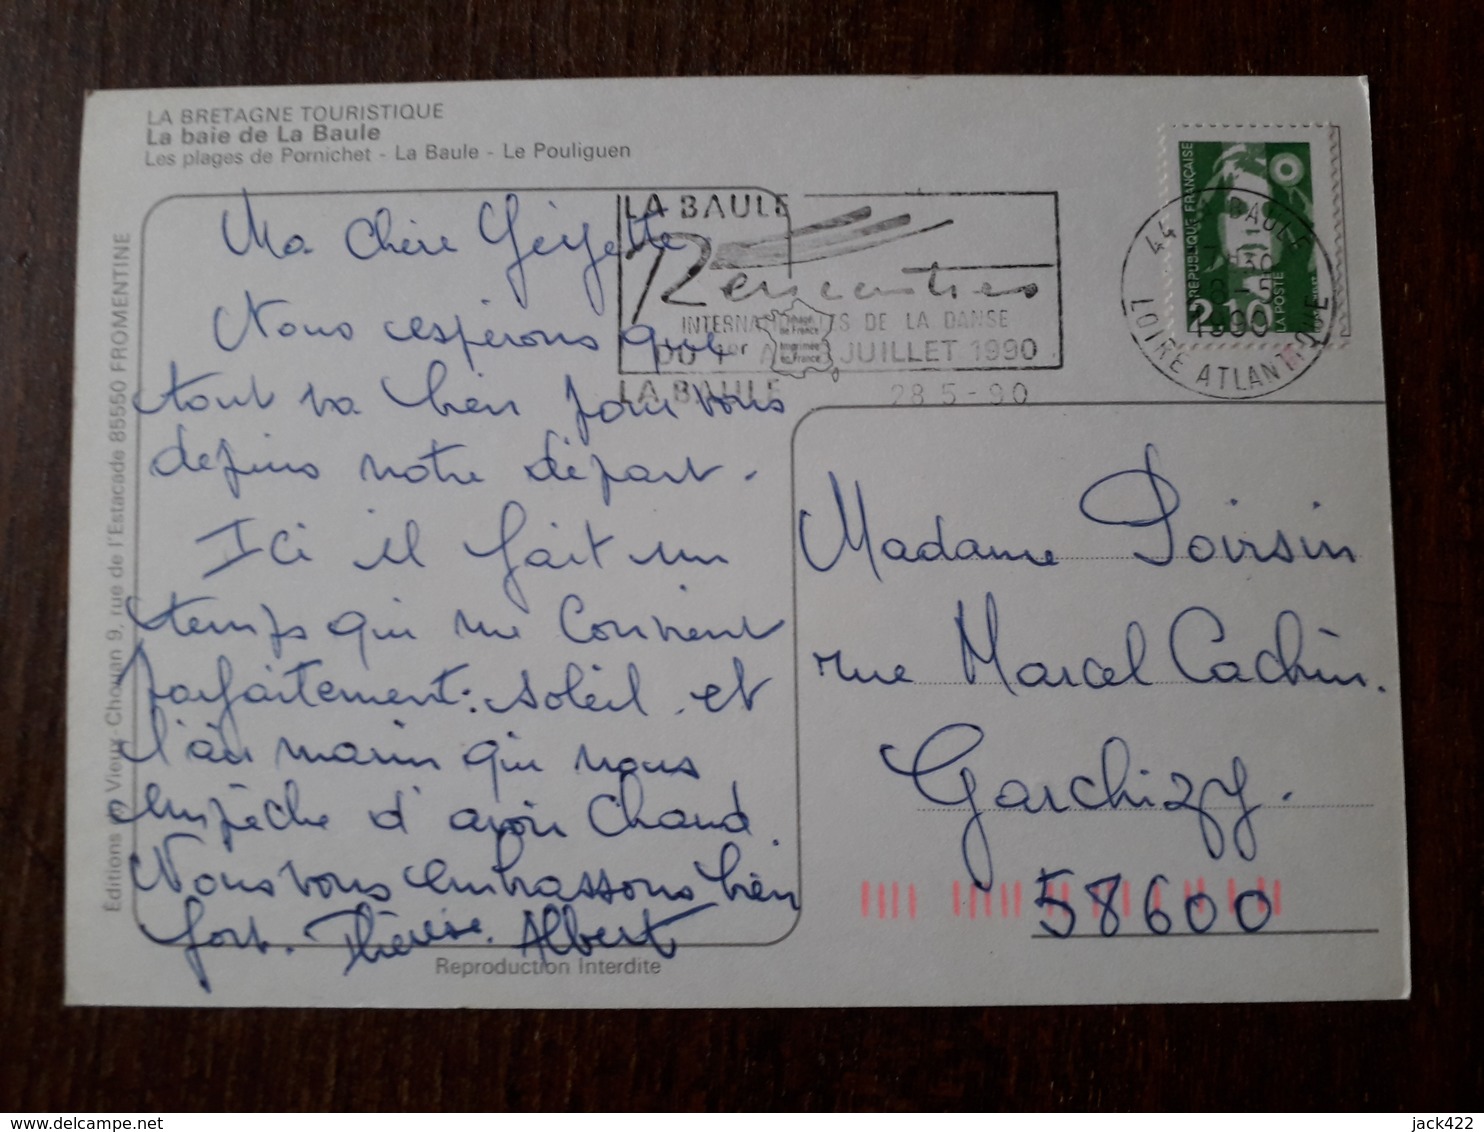 LA BRETAGNE TOURISTIQUE
La baie de La Baule
Les plages de Pornichet - La Baule - Le Pouliguen
Editions du Vieux Chouan 9, rue de l'Estacade 85550 FROMENTINE
Ma chère
Nous espérons que
tout va bien pour vous
depuis notre départ.
Ici il fait un
temps qui me convient
parfaitement : soleil et
l'air marin qui nous
empêche d'avoir chaud.
Nous vous embrassons bien
fort. Thérèse. Albert
Reproduction Interdite
LA BAULE
Rencontres
INTERNATIONALES DE LA DANSE
DU 1er AU JUILLET 1990
LA BAULE
28.5-90
Image de France
Imprimée en France
REPUBLIQUE FRANÇAISE
2,10
LA POSTE
44 LA BAULE
28-5
1990
LOIRE ATLANTIQUE
Madame Poirsin
rue Marcel Cachin.
Garchizy.
58600
delcampe.net
jack422